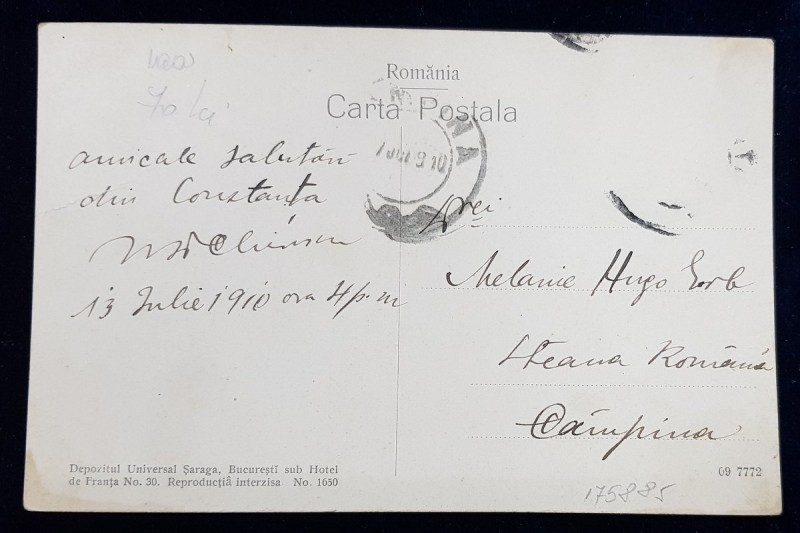 România
Carta Postala
amicale salutări
din Constanța
13 Iulie 1910 ora 4 p.m
Dnei
Melanie Hugo
Steana Română
Câmpina
Depozitul Universal Șaraga, București sub Hotel
de Franța No. 30. Reproducția interzisa No. 1650
09 7772
175885